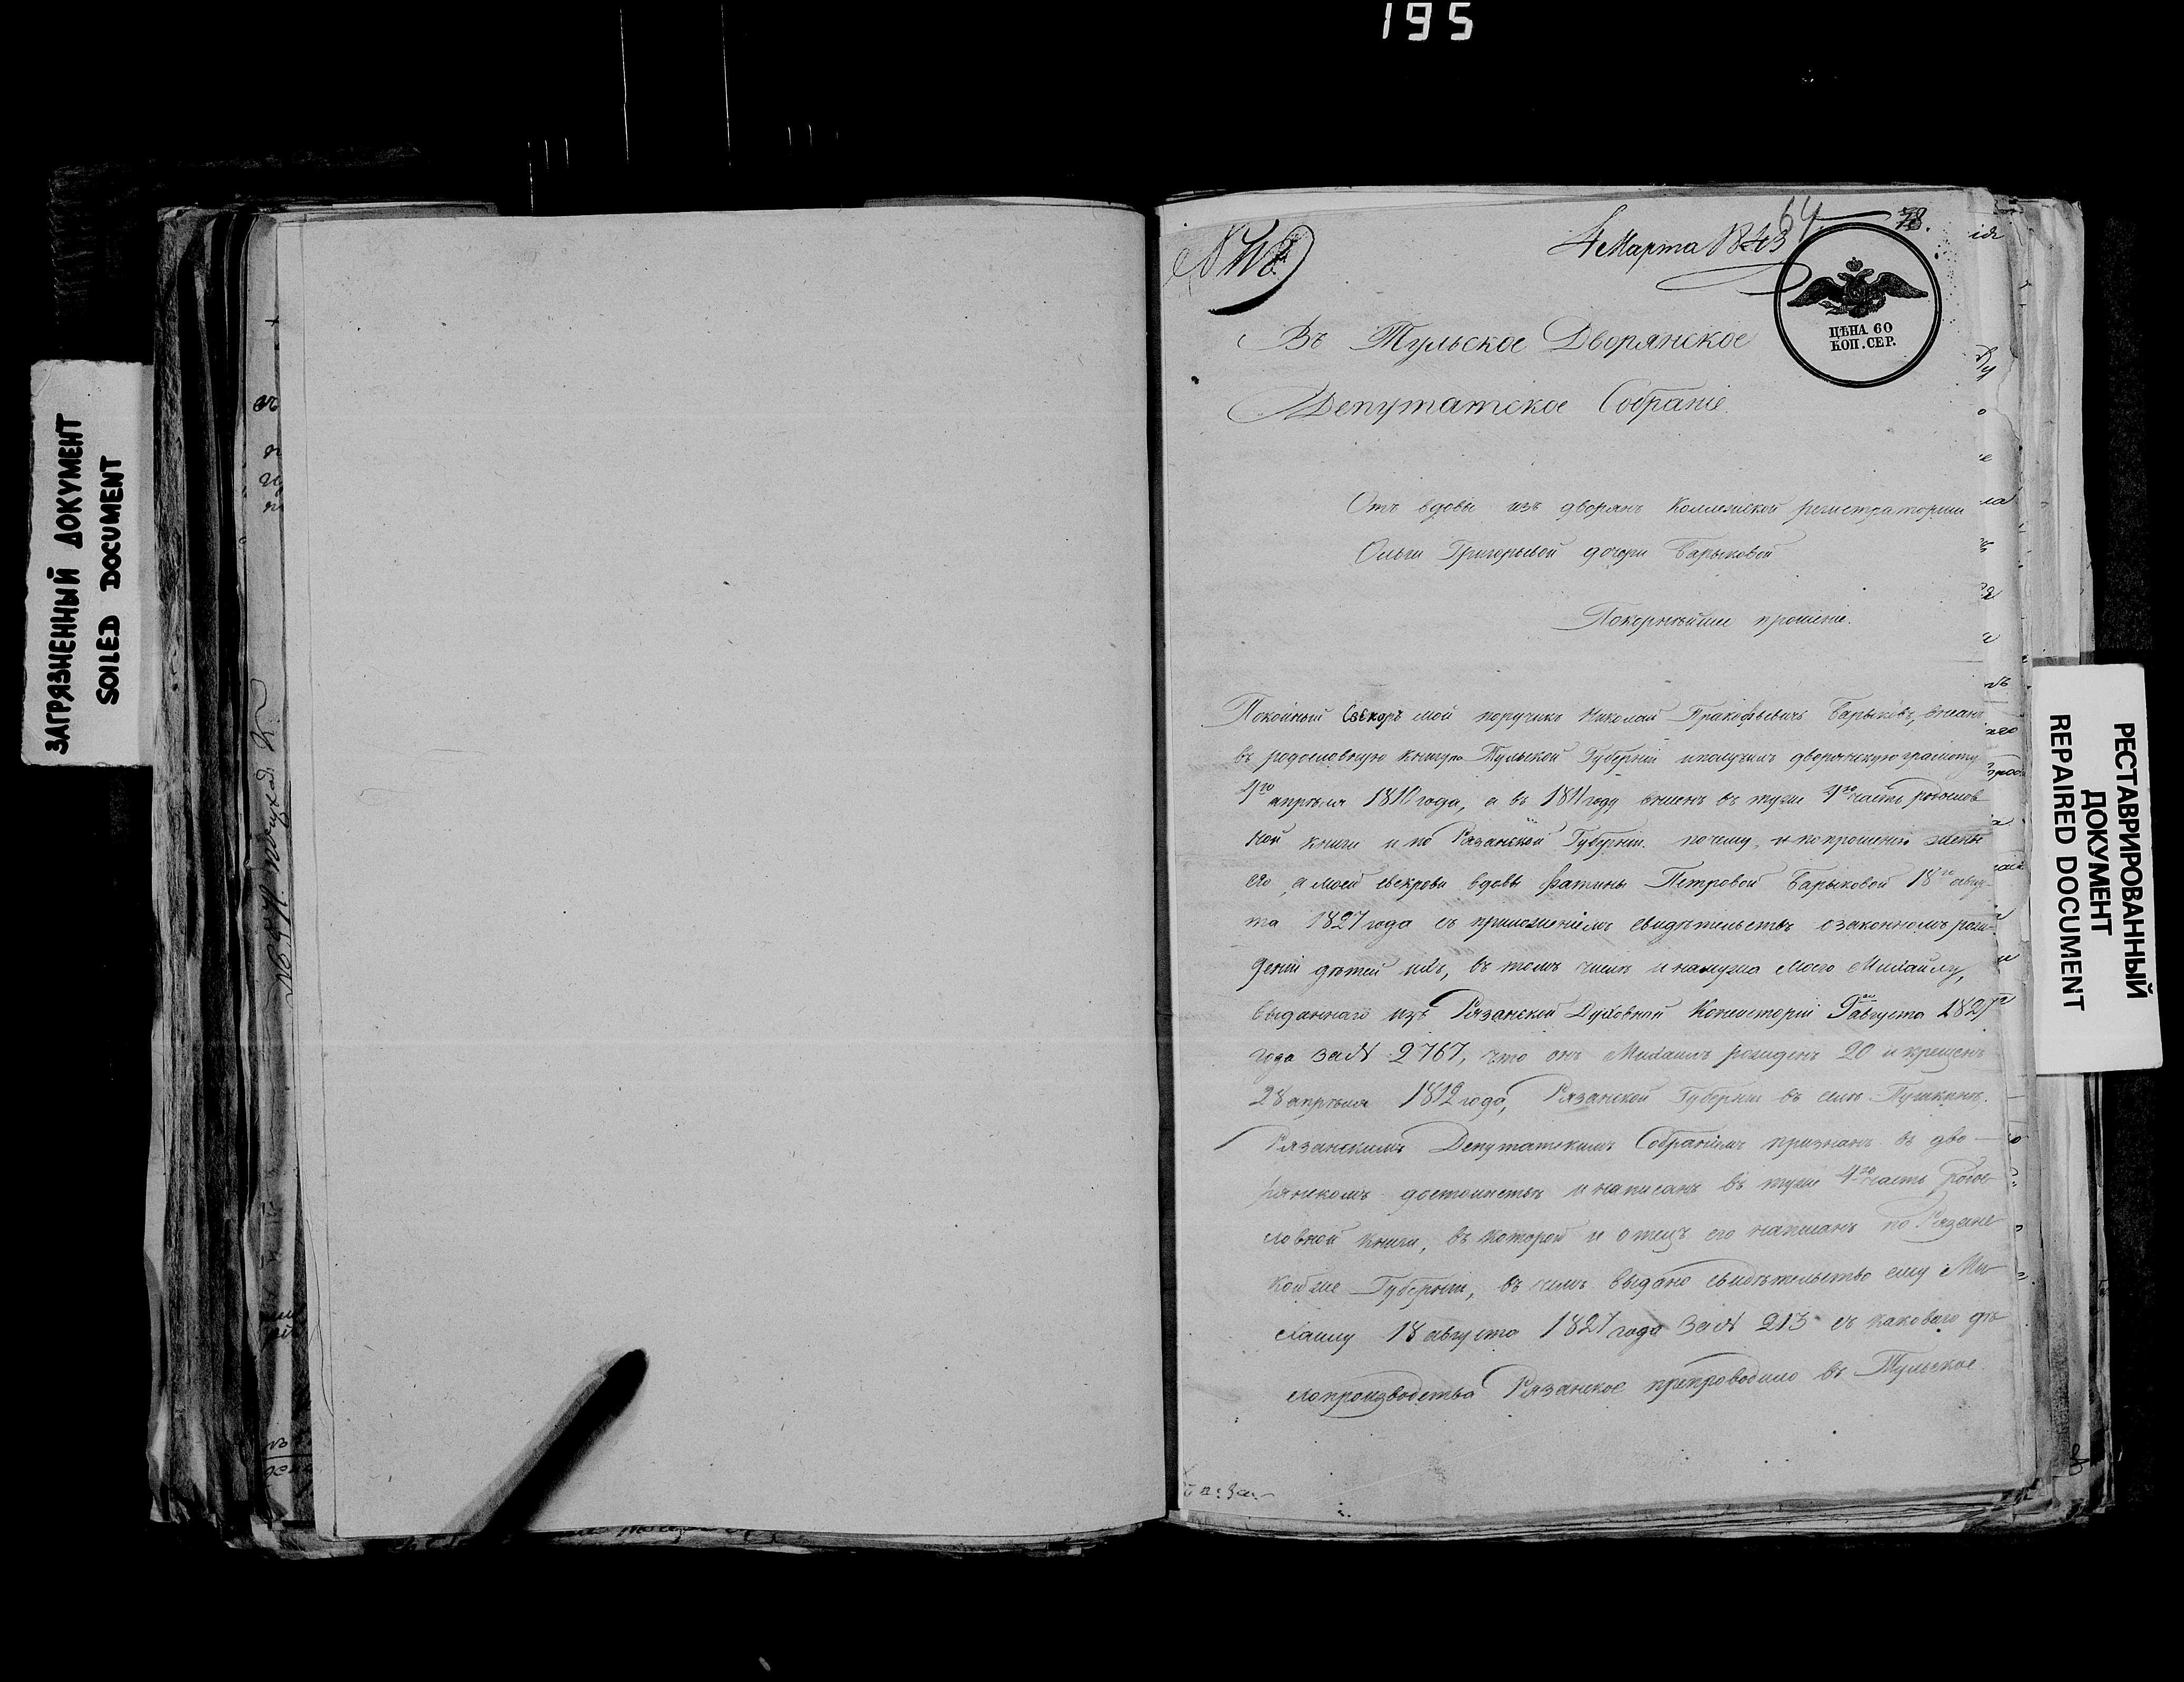 195
ЗАГРЯЗНЕННЫЙ ДОКУМЕНТ
SOILED DOCUMENT
4 Марта 1843
64
78.
ЦѢНА 60
КОП. СЕР.
Въ Тульское Дворянское
Депутатское Собраніе.
Отъ вдовы изъ дворянъ Коллежской регистраторши
Ольги Григорьевой дочери Барыковой
Покорнѣйшее прошеніе.
Покойный Свекоръ мой поручикъ Николай Пракофьевичь Барыковъ, внесенъ
въ родословную книгу Тульской Губерніи и получилъ дворянскую грамоту
апрѣля 1810 года, а въ 1811 году внесенъ въ туже 4ю часть родослов
ной книги и по Рязанской Губерніи. почему, и по прошенію жены
его, а моей свекрови вдовы Фатины Петровой Барыковой 18го авгус
та 1827 года съ приложеніемъ свидѣтельствъ о законномъ рож
деніи дѣтей ихъ, въ томъ числѣ и на мужа моего Михайлу,
выданнаго изъ Рязанской Духовной Консисторіи 9 августа 1827
года за № 2767, что онъ Михаилъ рожденъ 20 и крещенъ
28 апрѣля 1812 года, Рязанской Губерніи въ селѣ Пушкинѣ.
Рязанскимъ Депутатскимъ Собраніемъ признанъ въ дво-
рянскомъ достоинствѣ и написанъ въ туже 4ю часть родос
ловной книги, въ которой и отецъ его написанъ по Рязанс
кой же Губерніи, въ чемъ выдано свидѣтельство ему Ми
хайлу 18 августа 1827 года за № 213 съ каковаго дѣ
лопроизводства Рязанское препроводило въ Тульское
РЕСТАВРИРОВАННЫЙ
ДОКУМЕНТ
REPAIRED DOCUMENT